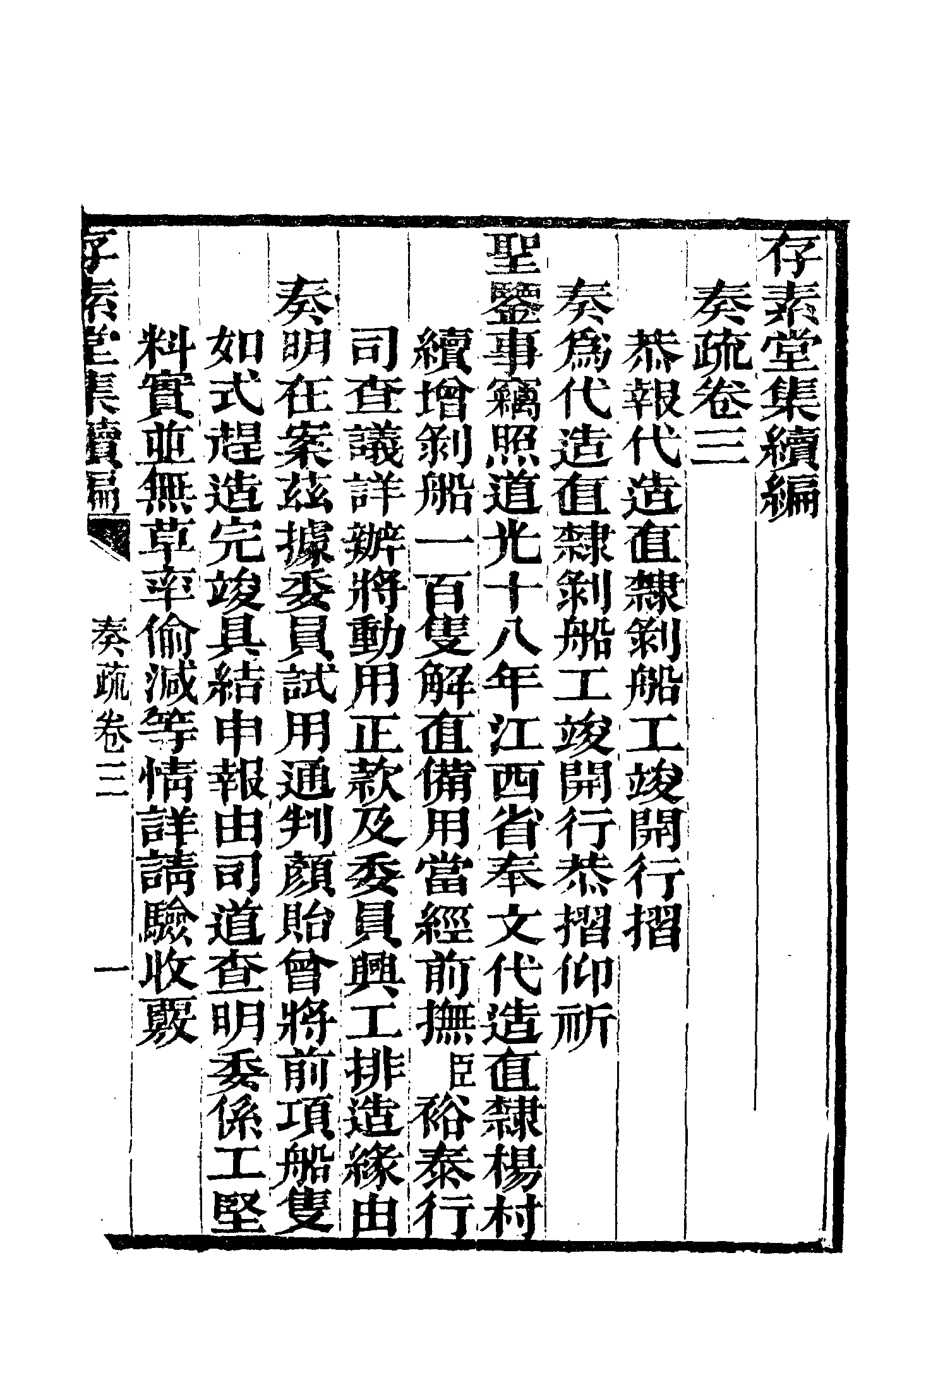 存素堂集續編
奏疏卷三
恭報代造直隸剝船工竣開行摺
奏爲代造直隸剝船工竣開行恭摺仰祈
聖鑒事竊照道光十八年江西省奉文代造直隸楊村
續增剝船一百隻解直備用當經前撫臣裕泰行
司查議詳辦將動用正款及委員興工排造緣由
奏明在案茲據委員試用通判顏貽曾將前項船隻
如式趕造完竣具結申報由司道查明委係工堅
料實並無草率偷減等情詳請驗收覈
存素堂集續編
奏疏卷三
一